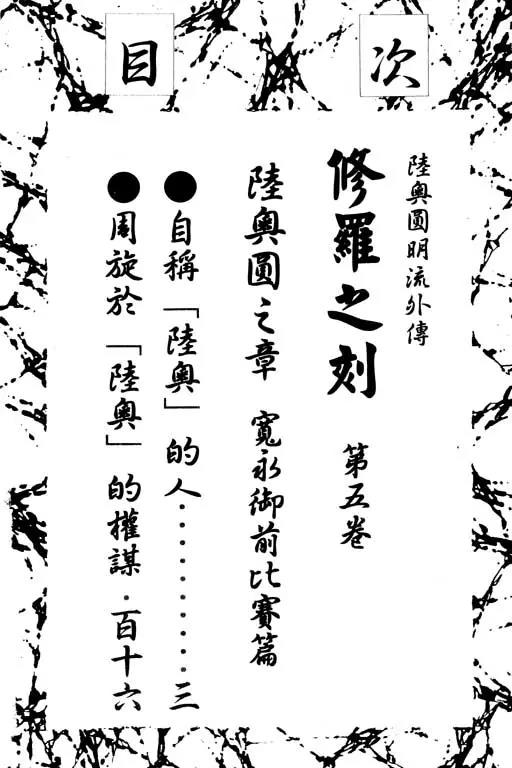 目次
陸奧圓明流外傳
修羅之刻 第五卷
陸奧圓之章 寬永御前比賽篇
●自稱「陸奧」的人・・・・・・・・・・三
●周旋於「陸奧」的權謀・百十六